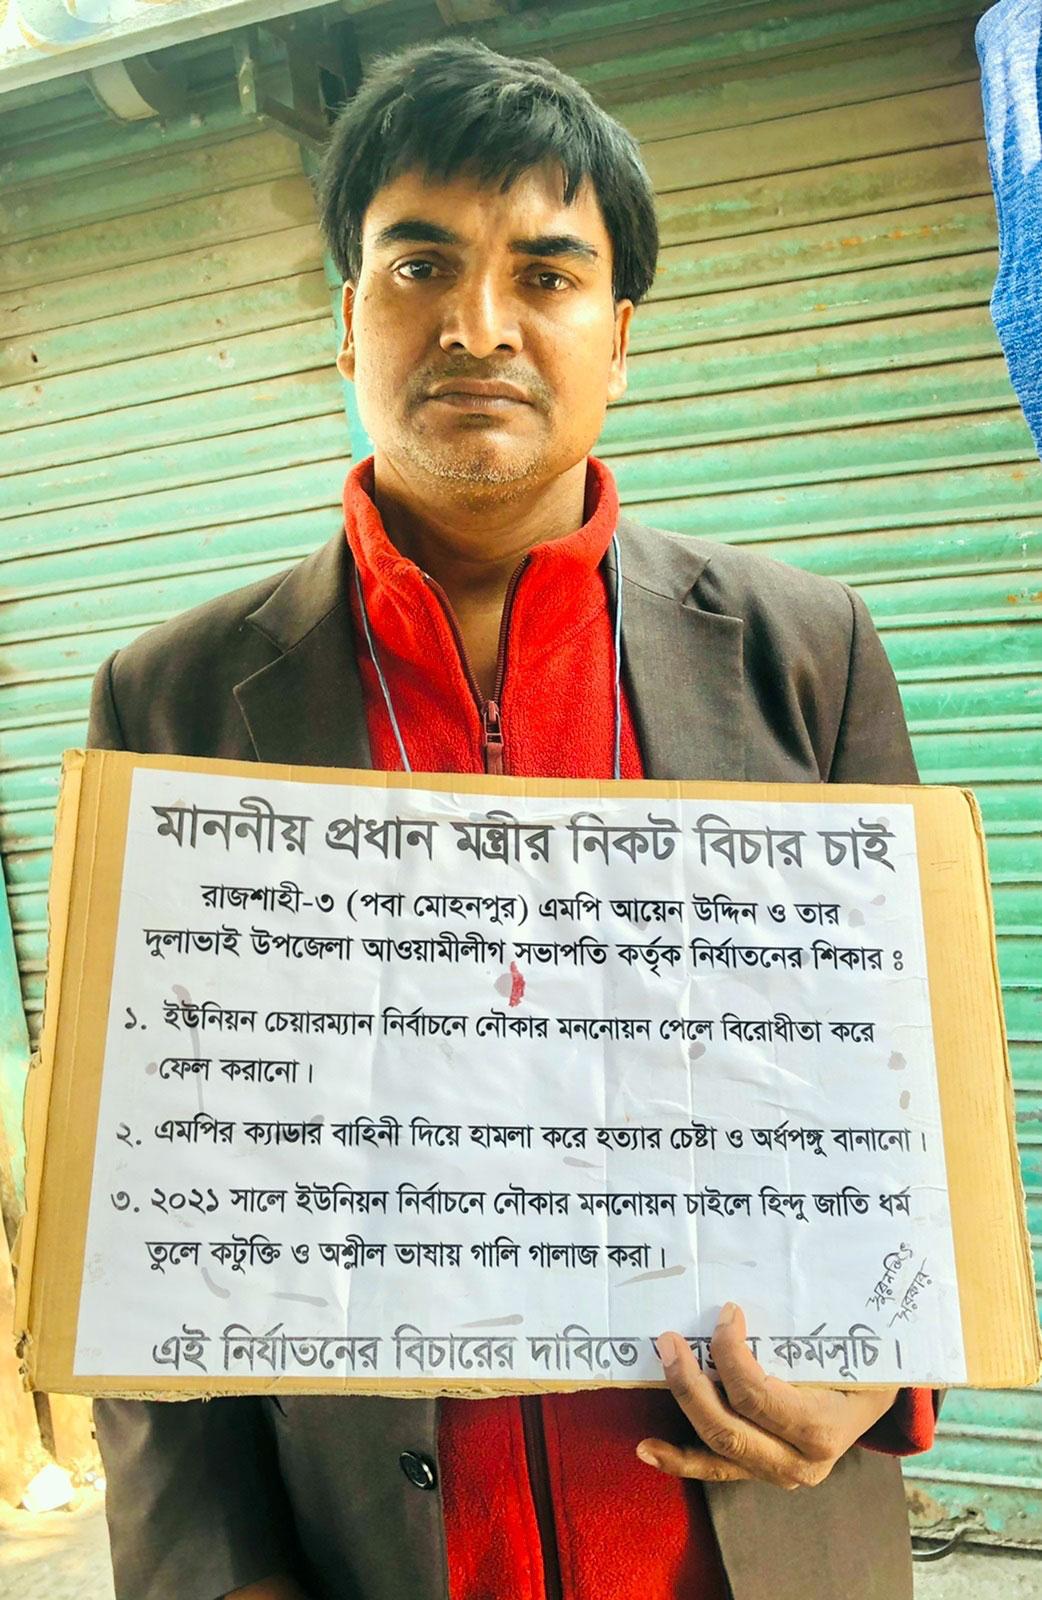 মাননীয় প্রধান মন্ত্রীর নিকট বিচার চাই
রাজশাহী-৩ (পবা মোহনপুর) এমপি আয়েন উদ্দিন ও তার
দুলাভাই উপজেলা আওয়ামীলীগ সভাপতি কর্তৃক নির্যাতনের শিকার ঃ
১. ইউনিয়ন চেয়ারম্যান নির্বাচনে নৌকার মননোয়ন পেলে বিরোধীতা করে
ফেল করানো।
২. এমপির ক্যাডার বাহিনী দিয়ে হামলা করে হত্যার চেষ্টা ও অর্ধপঙ্গু বানানো।
৩. ২০২১ সালে ইউনিয়ন নির্বাচনে নৌকার মননোয়ন চাইলে হিন্দু জাতি ধর্ম
তুলে কটুক্তি ও অশ্লীল ভাষায় গালি গালাজ করা।
সরকার
এই নির্যাতনের বিচারের দাবিতে কর্মসূচি।